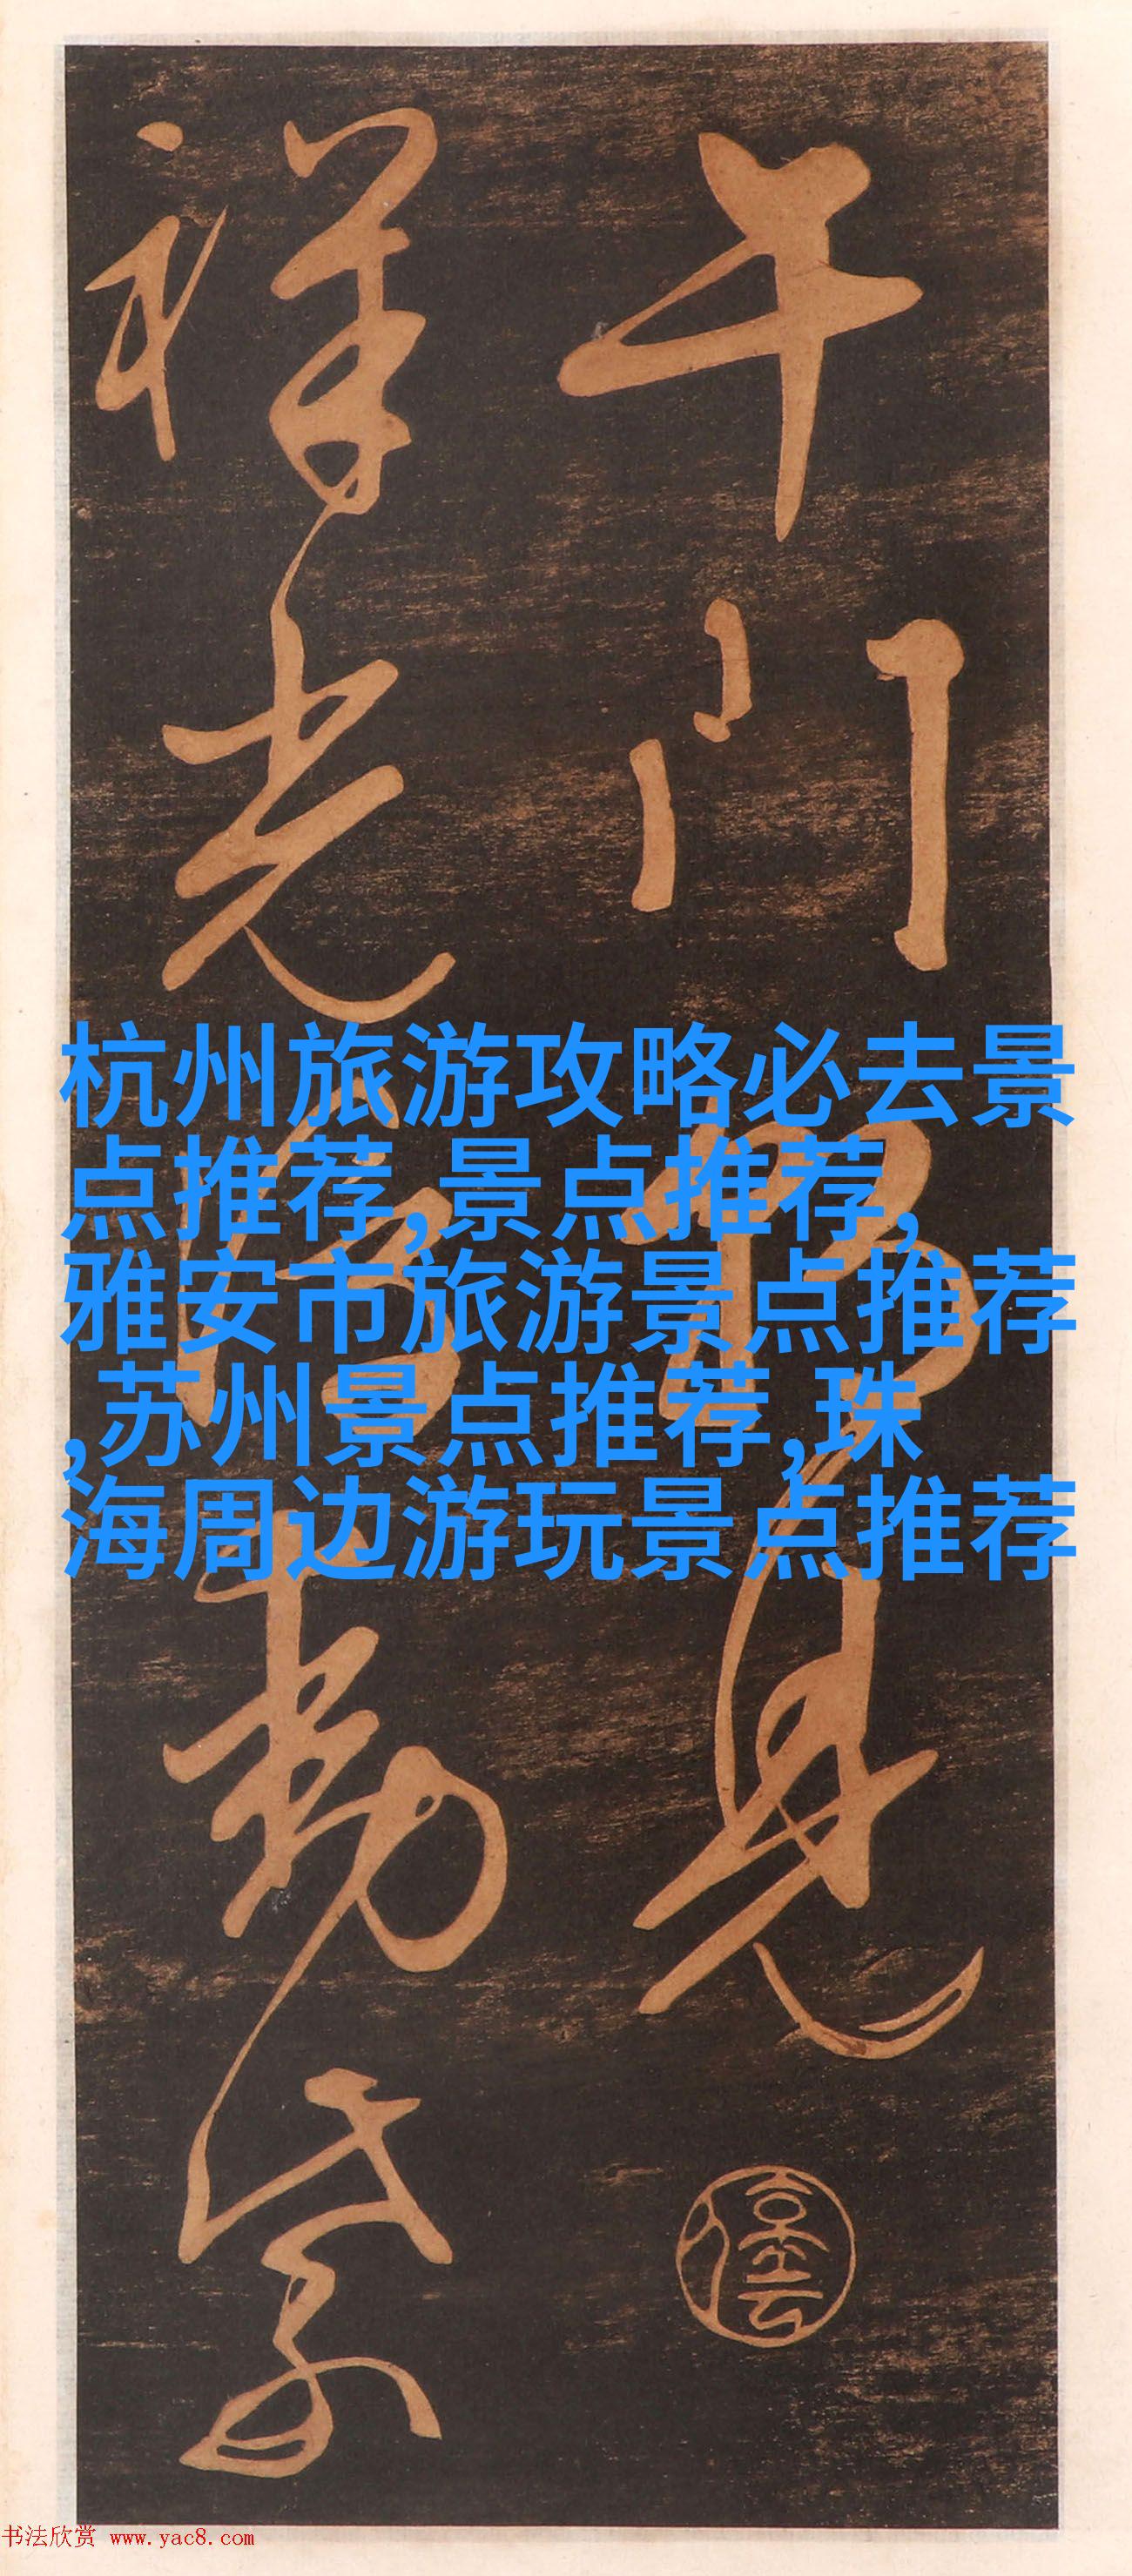 午門見
祥光動紫
杭州旅游攻略必去景
点推荐,景点推荐,
雅安市旅游景点推荐
,苏州景点推荐,珠
海周边游玩景点推荐
书法欣赏 www.yac8.com